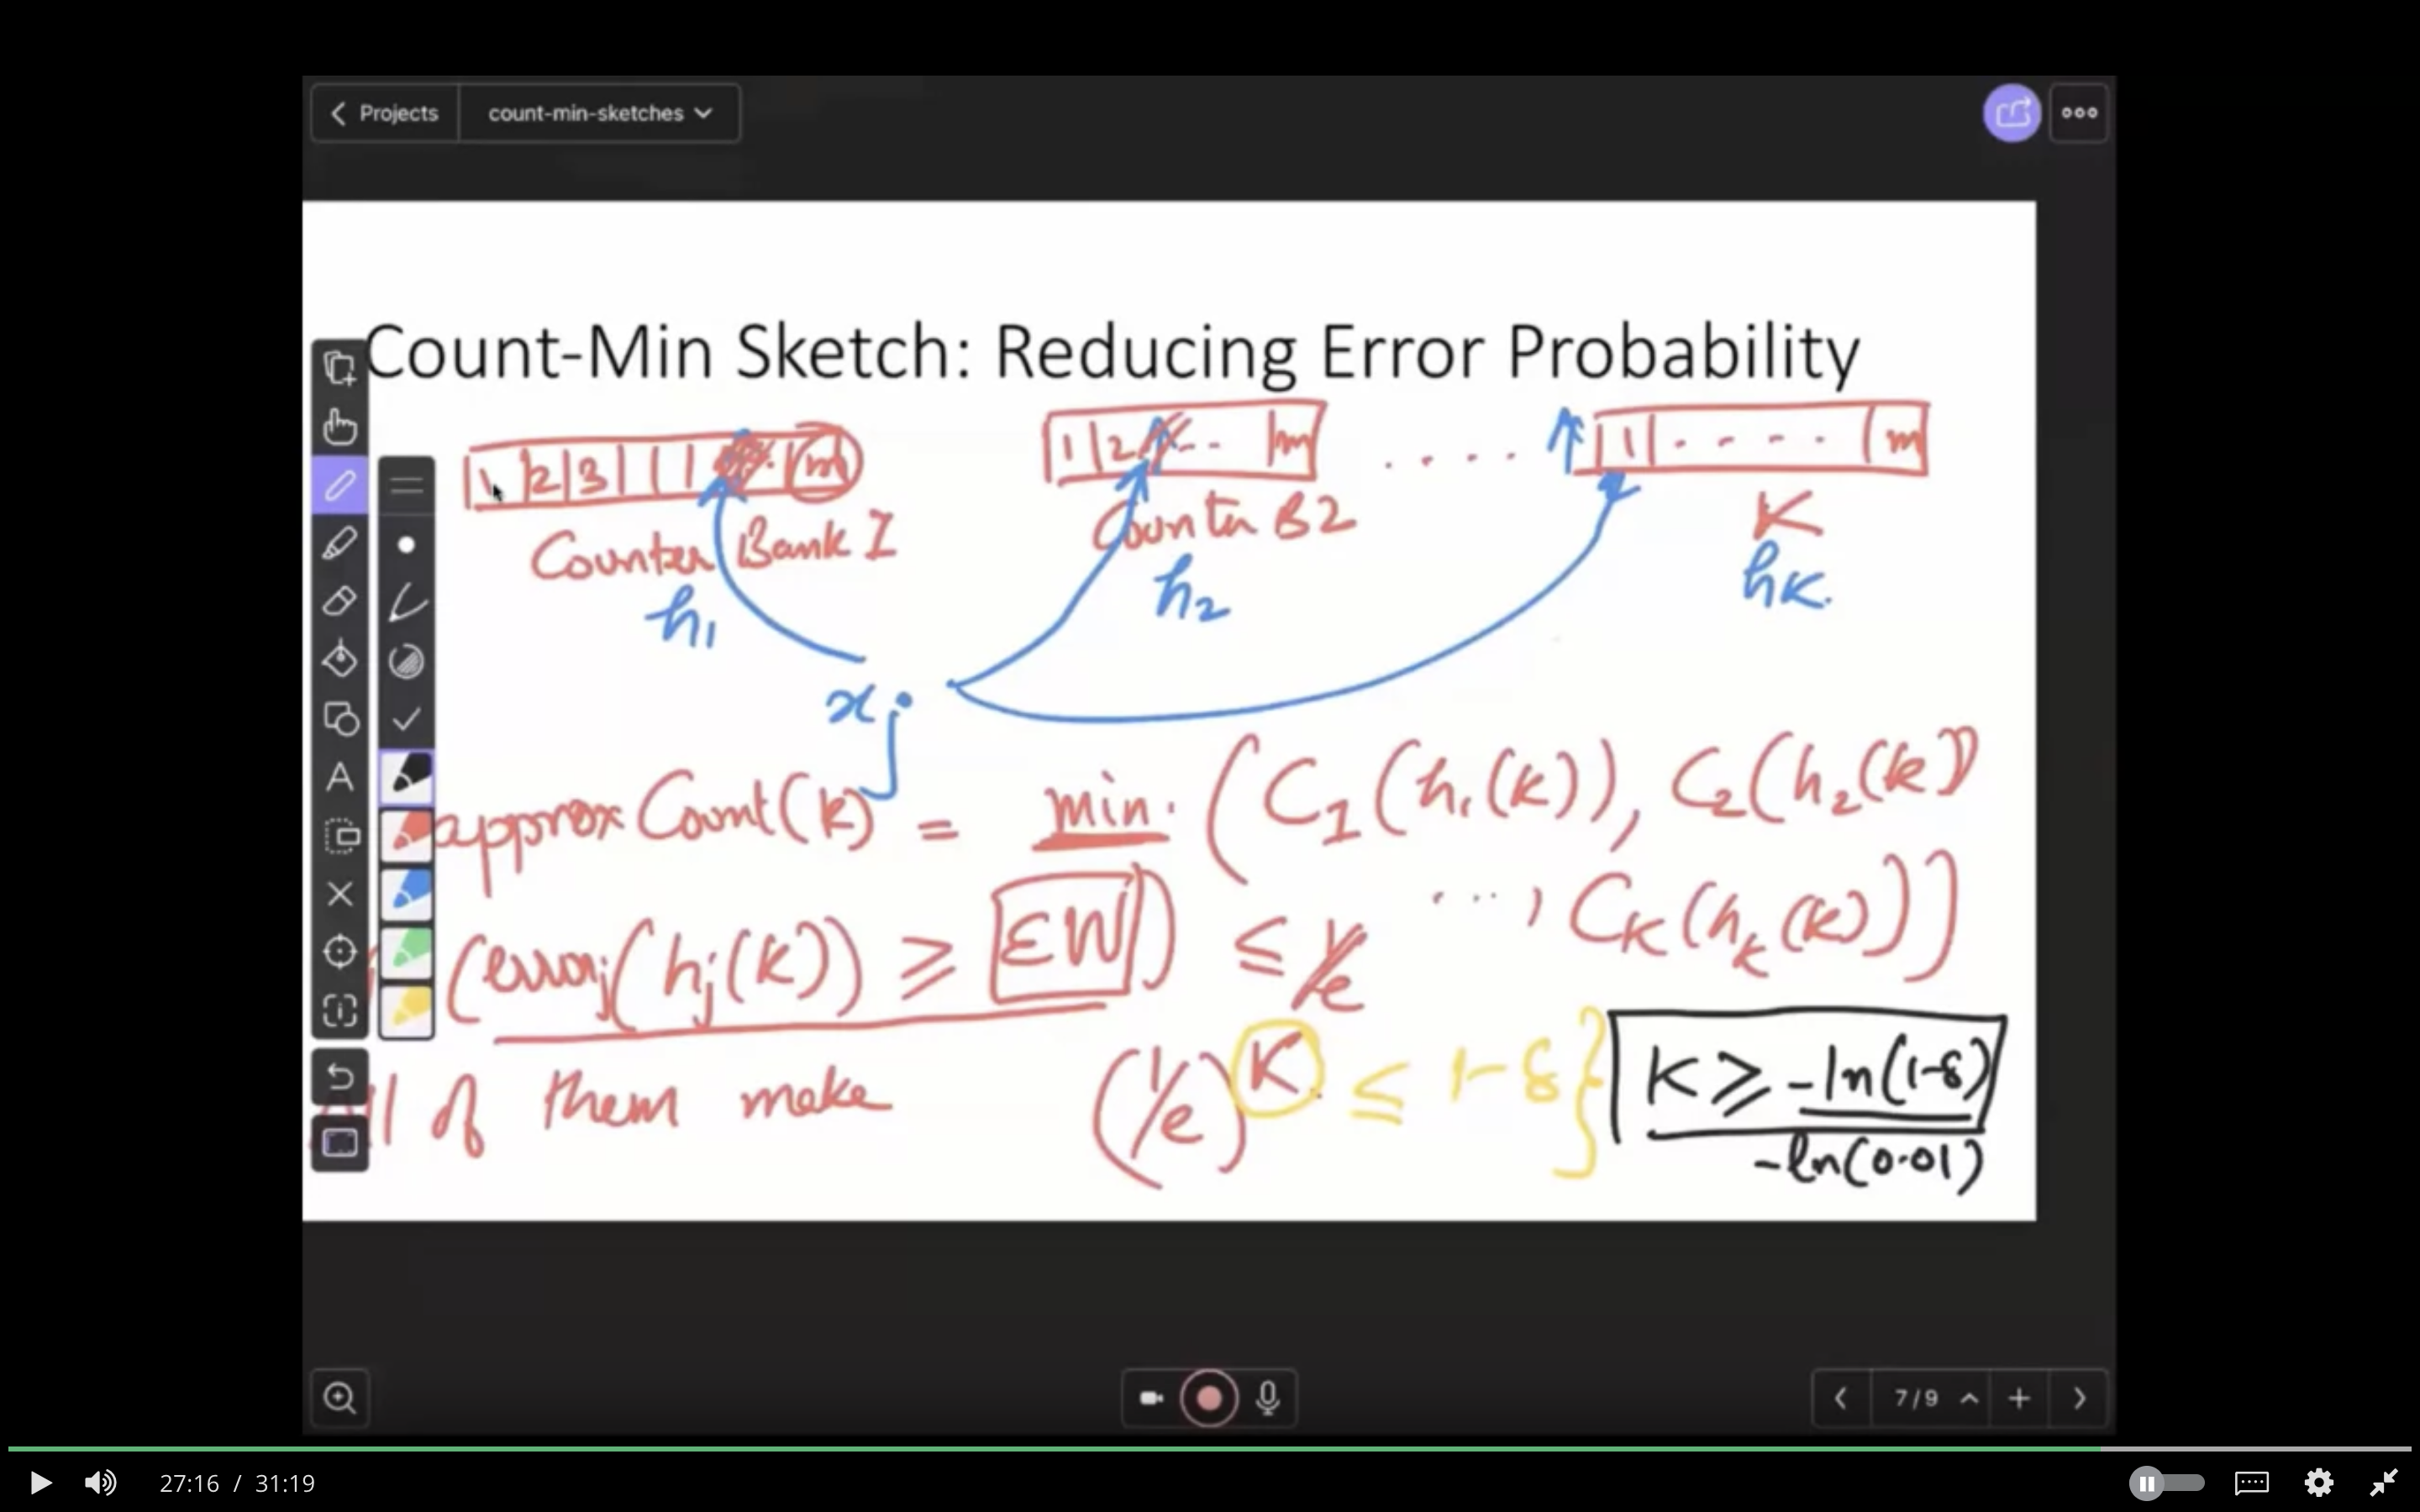 Projects count-min-sketches
Count-Min Sketch: Reducing Error Probability
1 2 3 m
1 2 .. m
....
1 .... m
Counter Bank I
Counter B2
K
h₁
h₂
hK.
xj
approxCount(k) = min. (C₁(h₁(k)), C₂(h₂(k))
..., CK(hk(k)))
(errorj(hj(k)) ≥ εW) ≤ 1/e
of them make (1/e)^K ≤ 1-δ} K ≥ -ln(1-δ)
-ln(0.01)
7/9
27:16 / 31:19